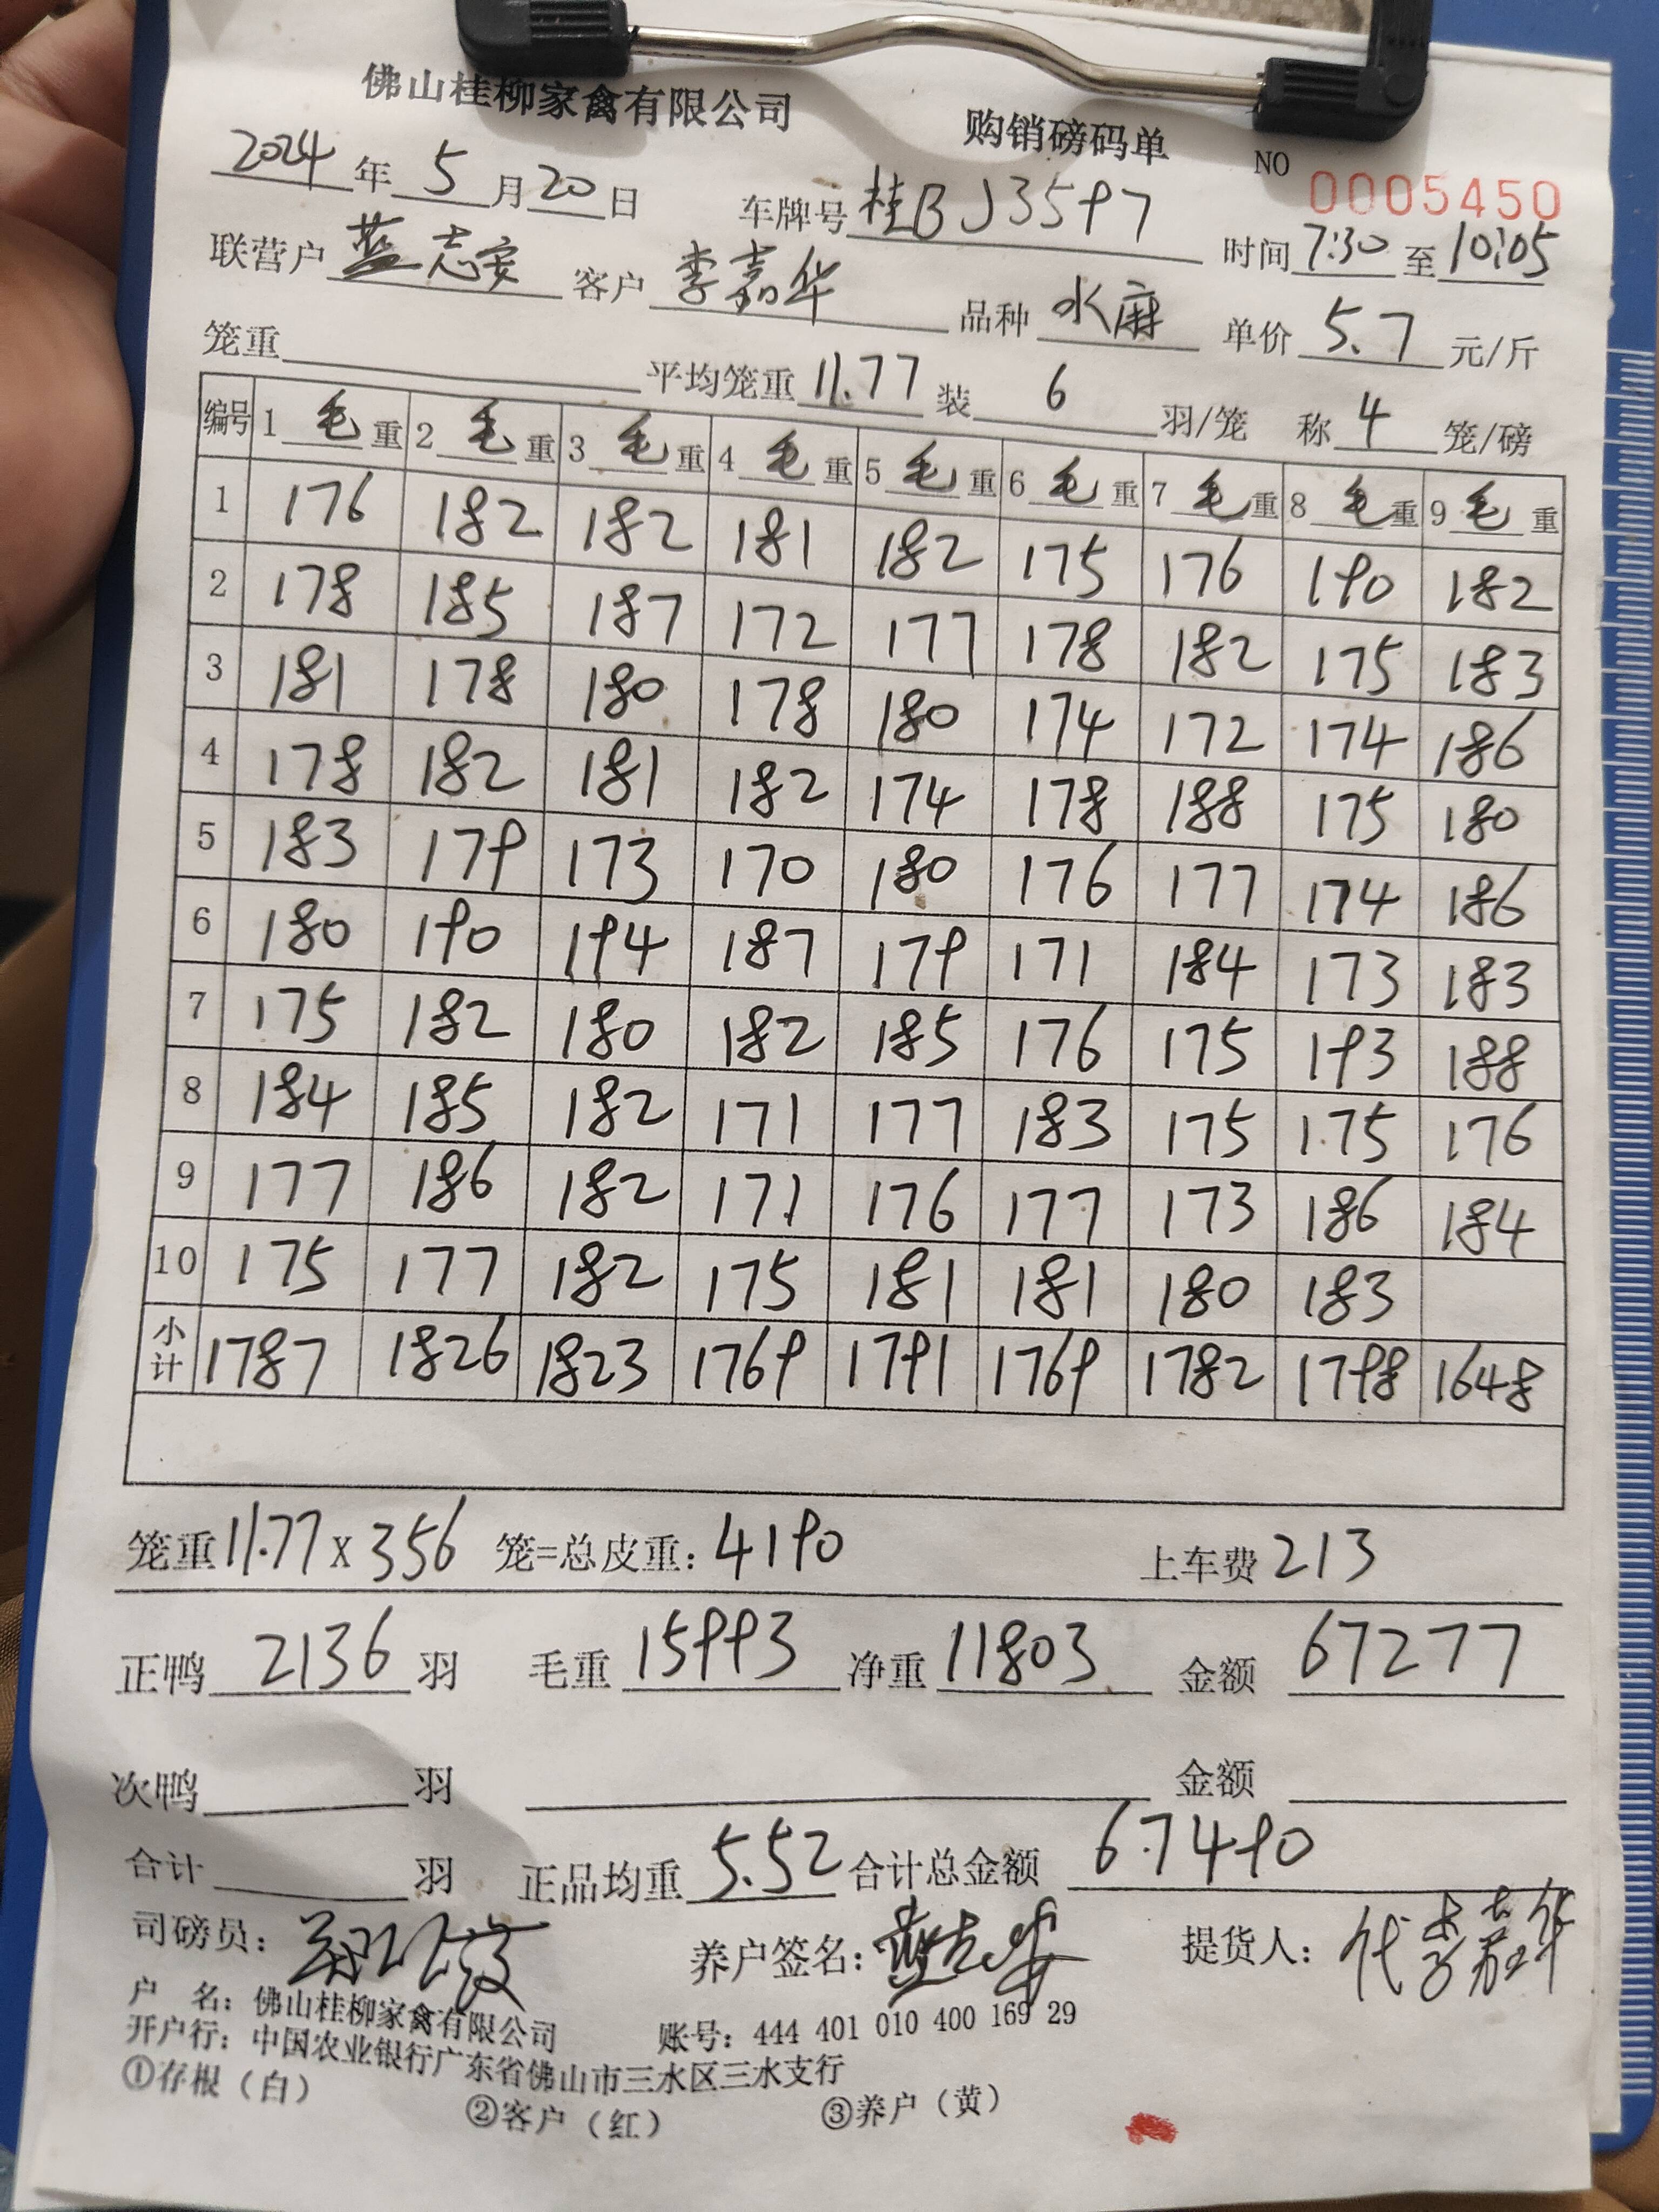 佛山桂柳家禽有限公司 购销磅码单 NO 0005450
2024年5月20日 车牌号桂BJ3597 时间7:30至10:05
联营户蓝志安 客户李嘉华 品种水麻 单价5.7元/斤
笼重 平均笼重11.77装6羽/笼 称4笼/磅
编号 1毛重 2毛重 3毛重 4毛重 5毛重 6毛重 7毛重 8毛重 9毛重
1 176 182 182 181 182 175 176 190 182
2 178 185 187 172 177 178 182 175 183
3 181 178 180 178 180 174 172 174 186
4 178 182 181 182 174 178 188 175 180
5 183 179 173 170 180 176 177 174 186
6 180 190 194 187 179 171 184 173 183
7 175 182 180 182 185 176 175 193 188
8 184 185 182 171 177 183 175 175 176
9 177 186 182 171 176 177 173 186 184
10 175 177 182 175 181 181 180 183
小计 1787 1826 1823 1769 1791 1769 1782 1798 1648
笼重11.77x356 笼=总皮重：4190 上车费213
正鸭2136羽 毛重15993 净重11803 金额67277
次鸭 羽 金额
合计 羽 正品均重5.52 合计总金额67490
司磅员： 养户签名：蓝志安 提货人：代李嘉华
户 名：佛山桂柳家禽有限公司 账号：444 401 010 400 169 29
开户行：中国农业银行广东省佛山市三水区三水支行
①存根（白） ②客户（红） ③养户（黄）